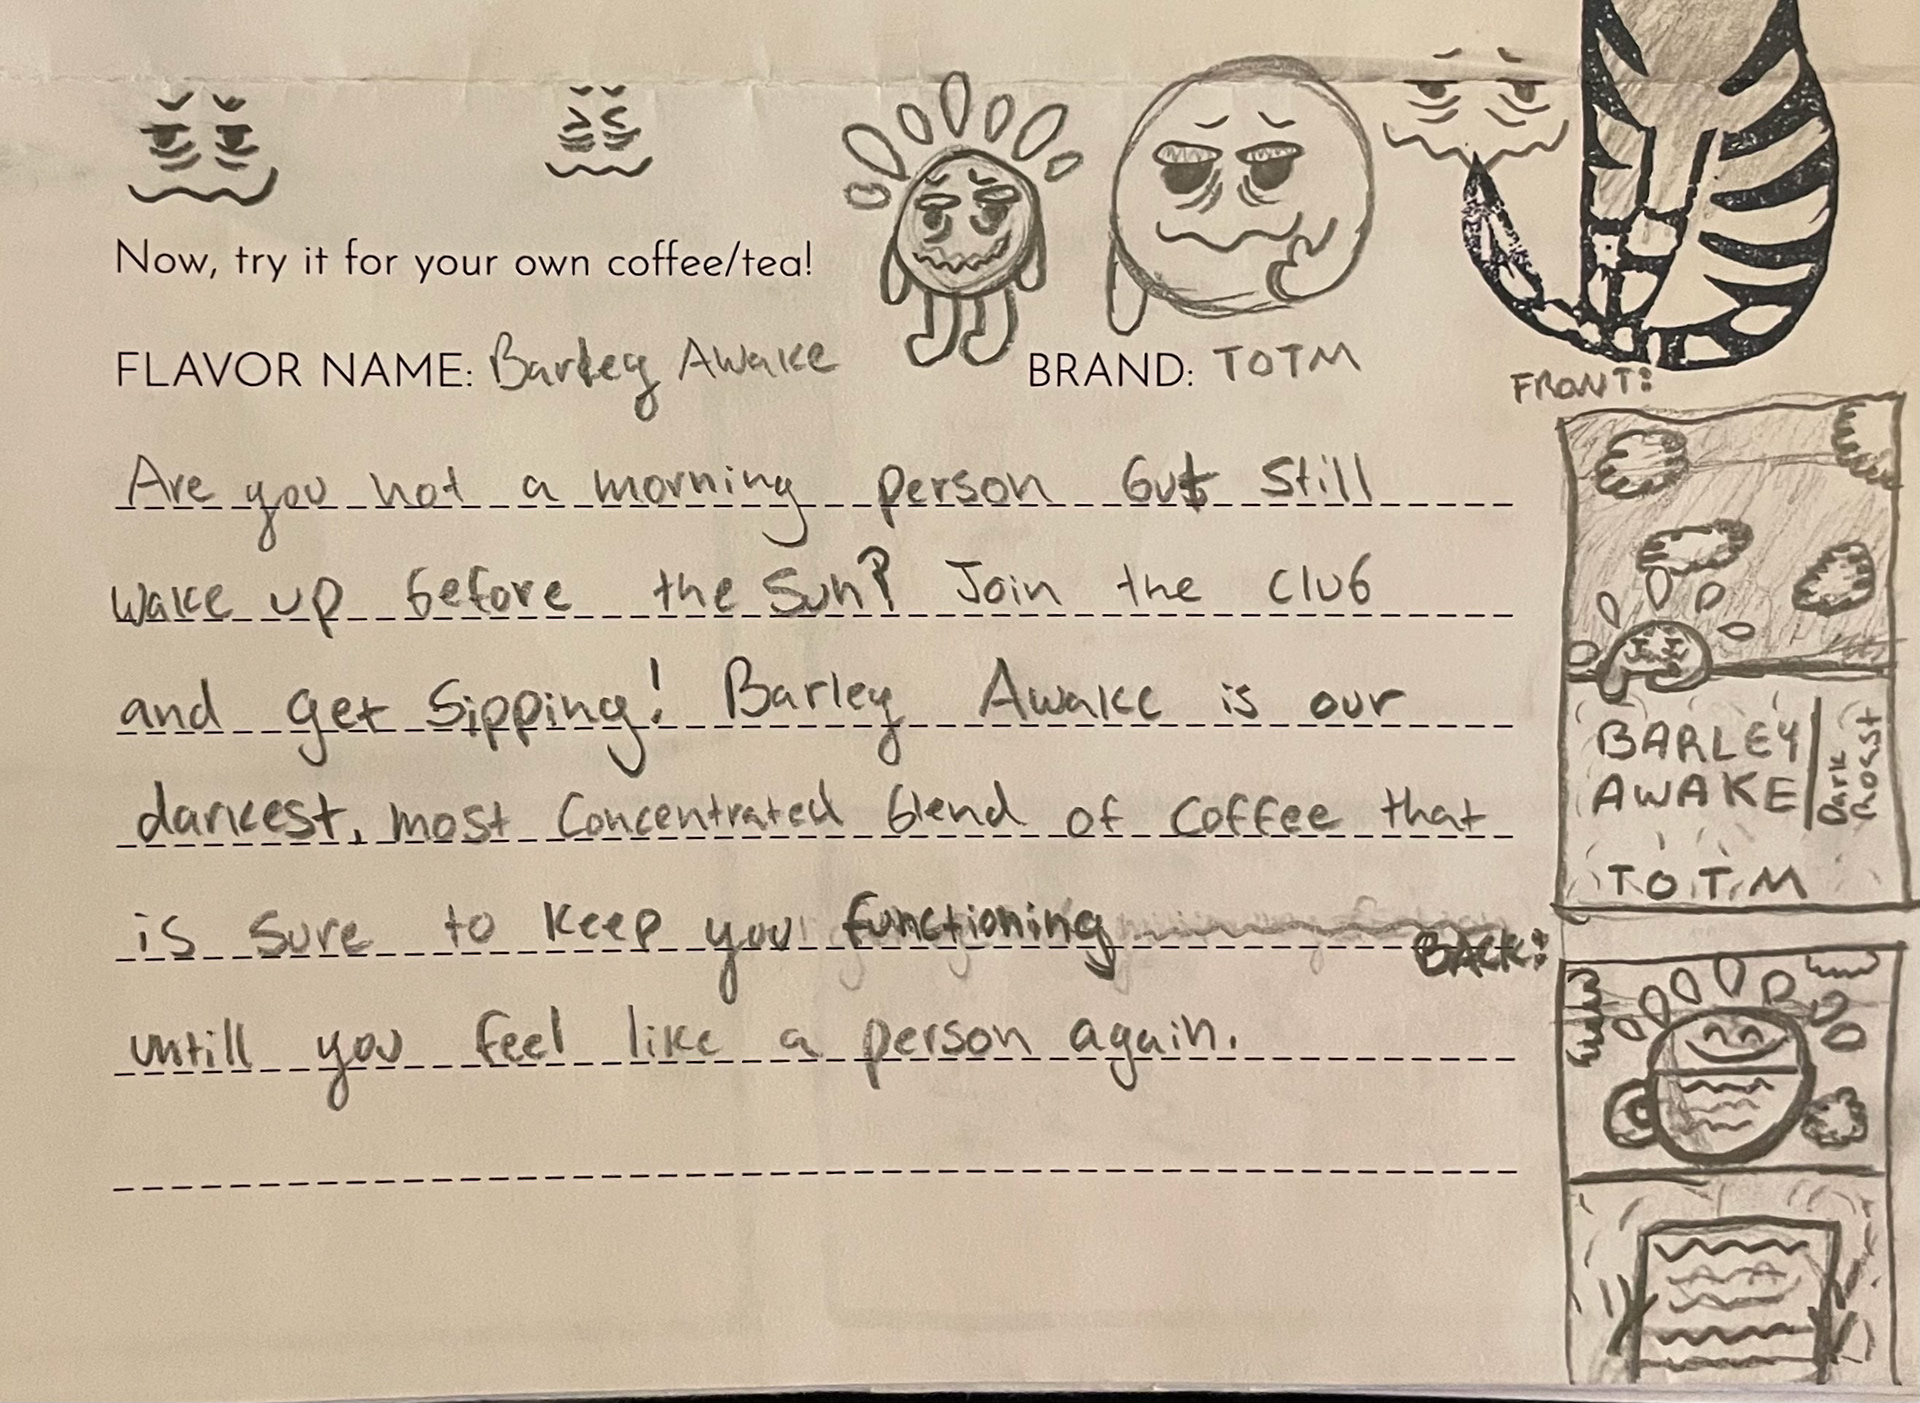 Now, try it for your own coffee/tea!
FLAVOR NAME: Barley Awake BRAND: TOTM
Are you not a morning person but still
wake up before the sun? Join the club
and get sipping! Barley Awake is our
darkest, most concentrated blend of coffee that
is sure to keep you functioning
untill you feel like a person again.
FRONT:
BARLEY
AWAKE
Dark
Roast
TOTM
BACK: